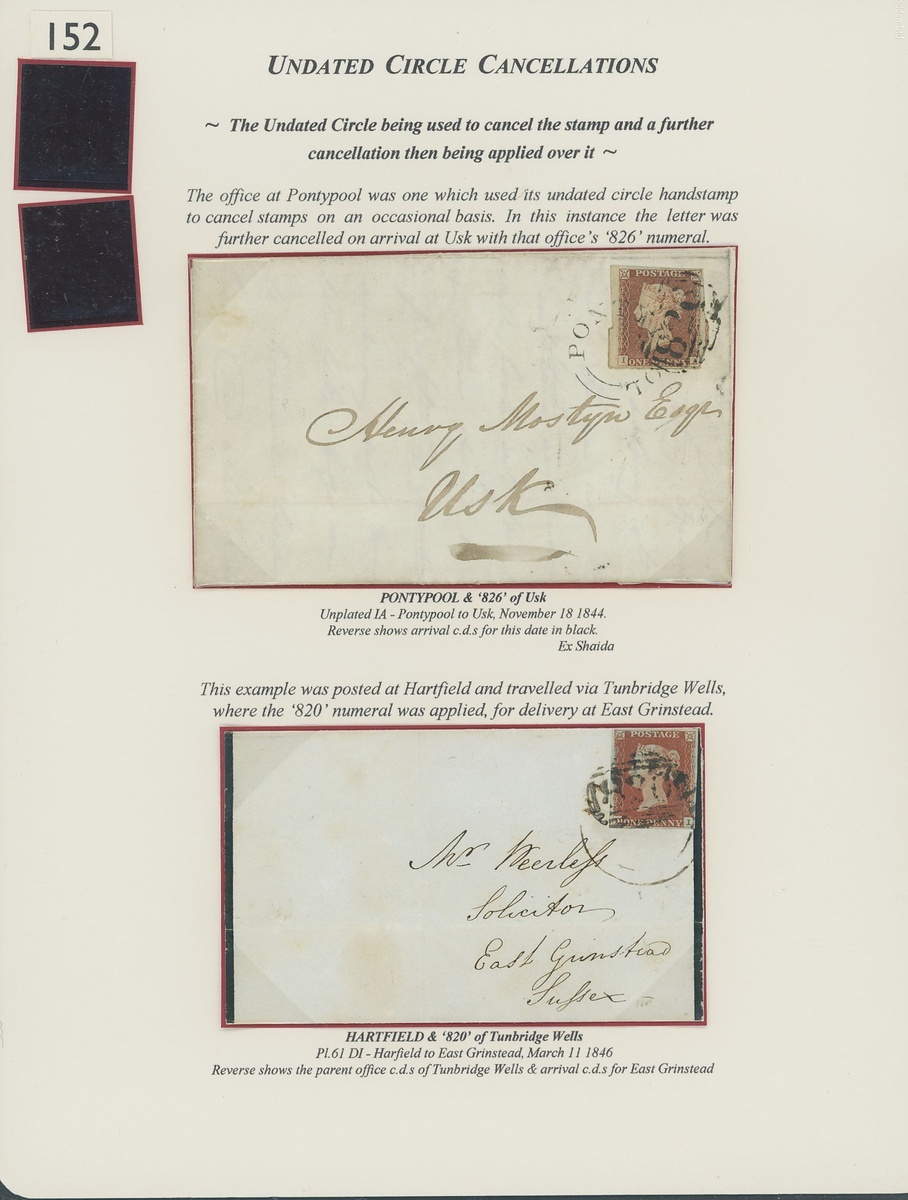 152
UNDATED CIRCLE CANCELLATIONS
~ The Undated Circle being used to cancel the stamp and a further
cancellation then being applied over it ~
The office at Pontypool was one which used its undated circle handstamp
to cancel stamps on an occasional basis. In this instance the letter was
further cancelled on arrival at Usk with that office's '826' numeral.
POSTAGE
PO
I ONE PENNY
Henry Mostyn Esqr
Usk
PONTYPOOL & '826' of Usk
Unplated IA - Pontypool to Usk, November 18 1844.
Reverse shows arrival c.d.s for this date in black.
Ex Shaida
This example was posted at Hartfield and travelled via Tunbridge Wells,
where the '820' numeral was applied, for delivery at East Grinstead.
POSTAGE
ONE PENNY I
Mr Weerless
Solicitor
East Grinstead
Sussex
HARTFIELD & '820' of Tunbridge Wells
Pl.61 DI - Harfield to East Grinstead, March 11 1846
Reverse shows the parent office c.d.s of Tunbridge Wells & arrival c.d.s for East Grinstead